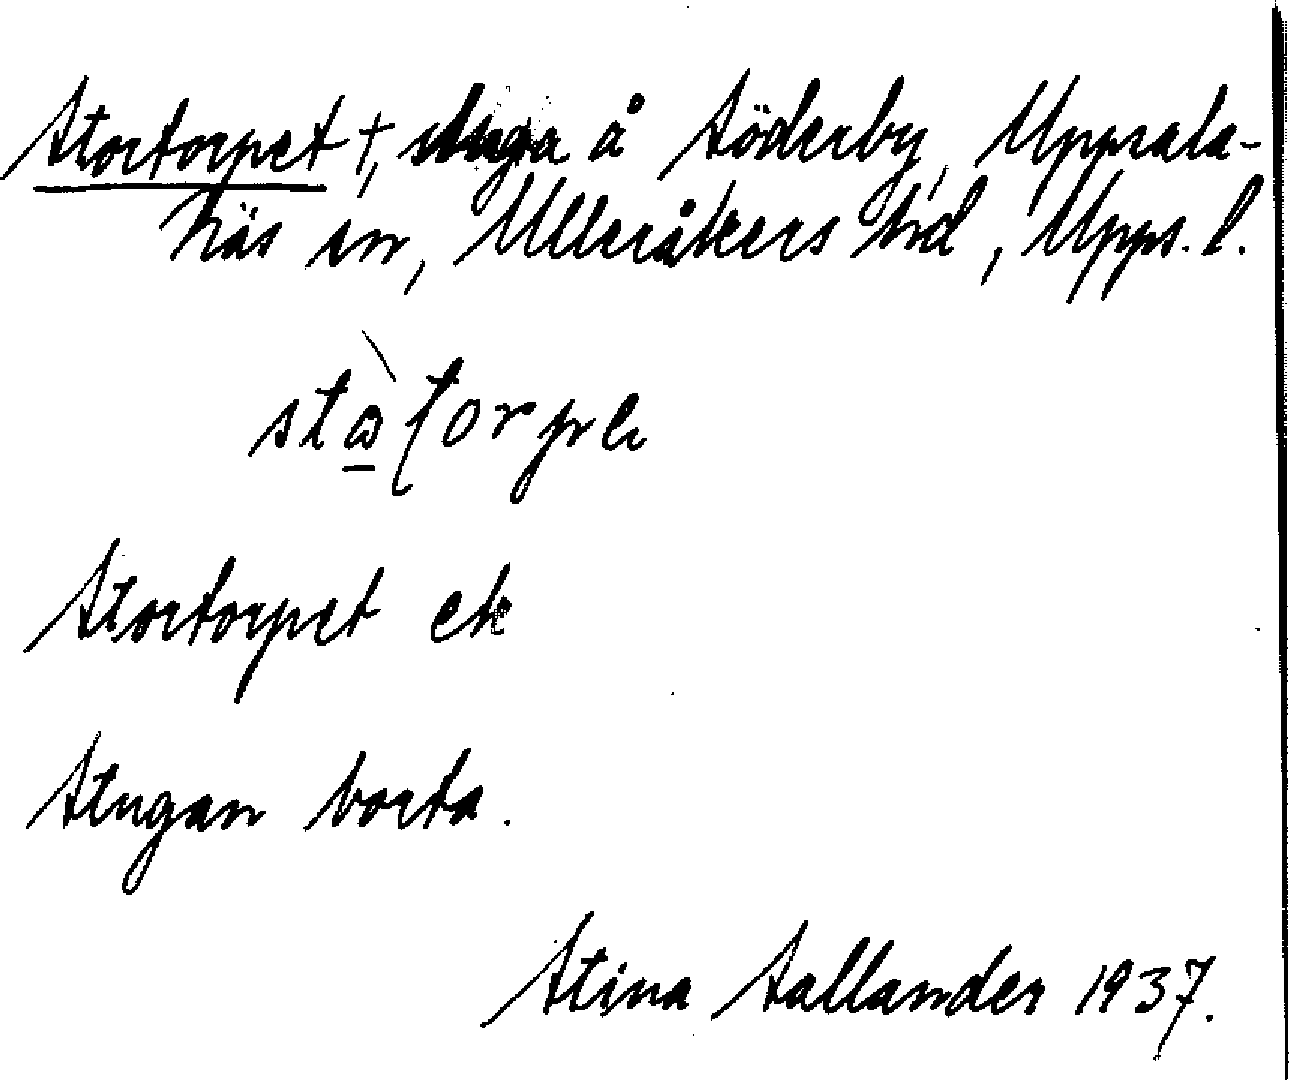 Stortorpet †, stuga å Söderby, Uppsala-
näs sn, Ulleråkers hd, Upps. l.
Stortorpet ek
Stugan borta.
Stina Sallander 1937.